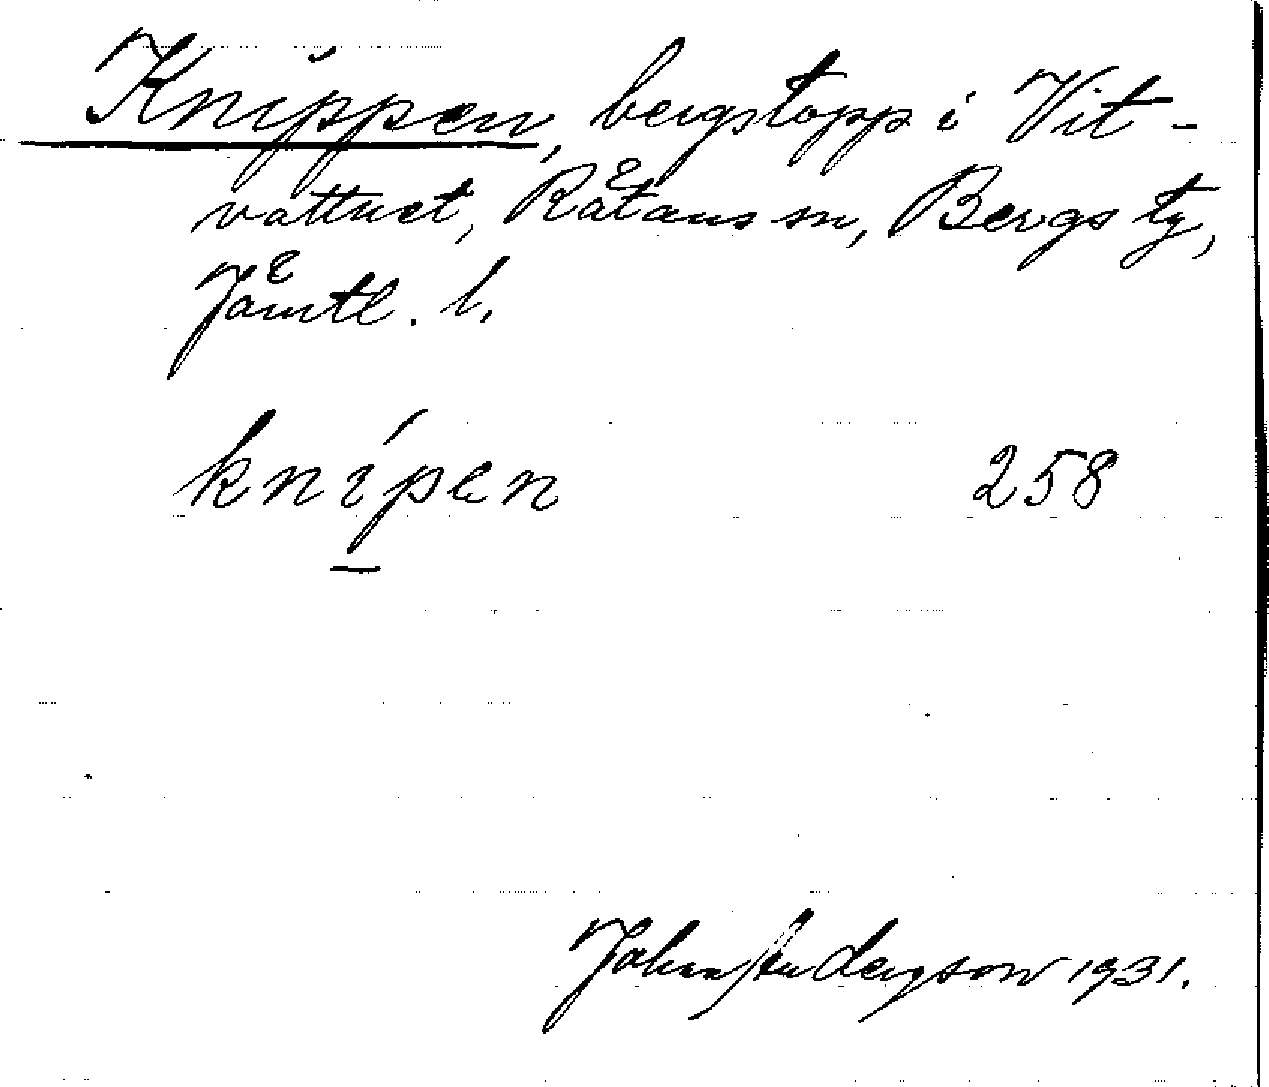 Knippen, bergstopp i Vit-
vattnet, Råtans sn, Bergs tg,
Jämtl. l.
knípen 258
Johan Andersson 1931.